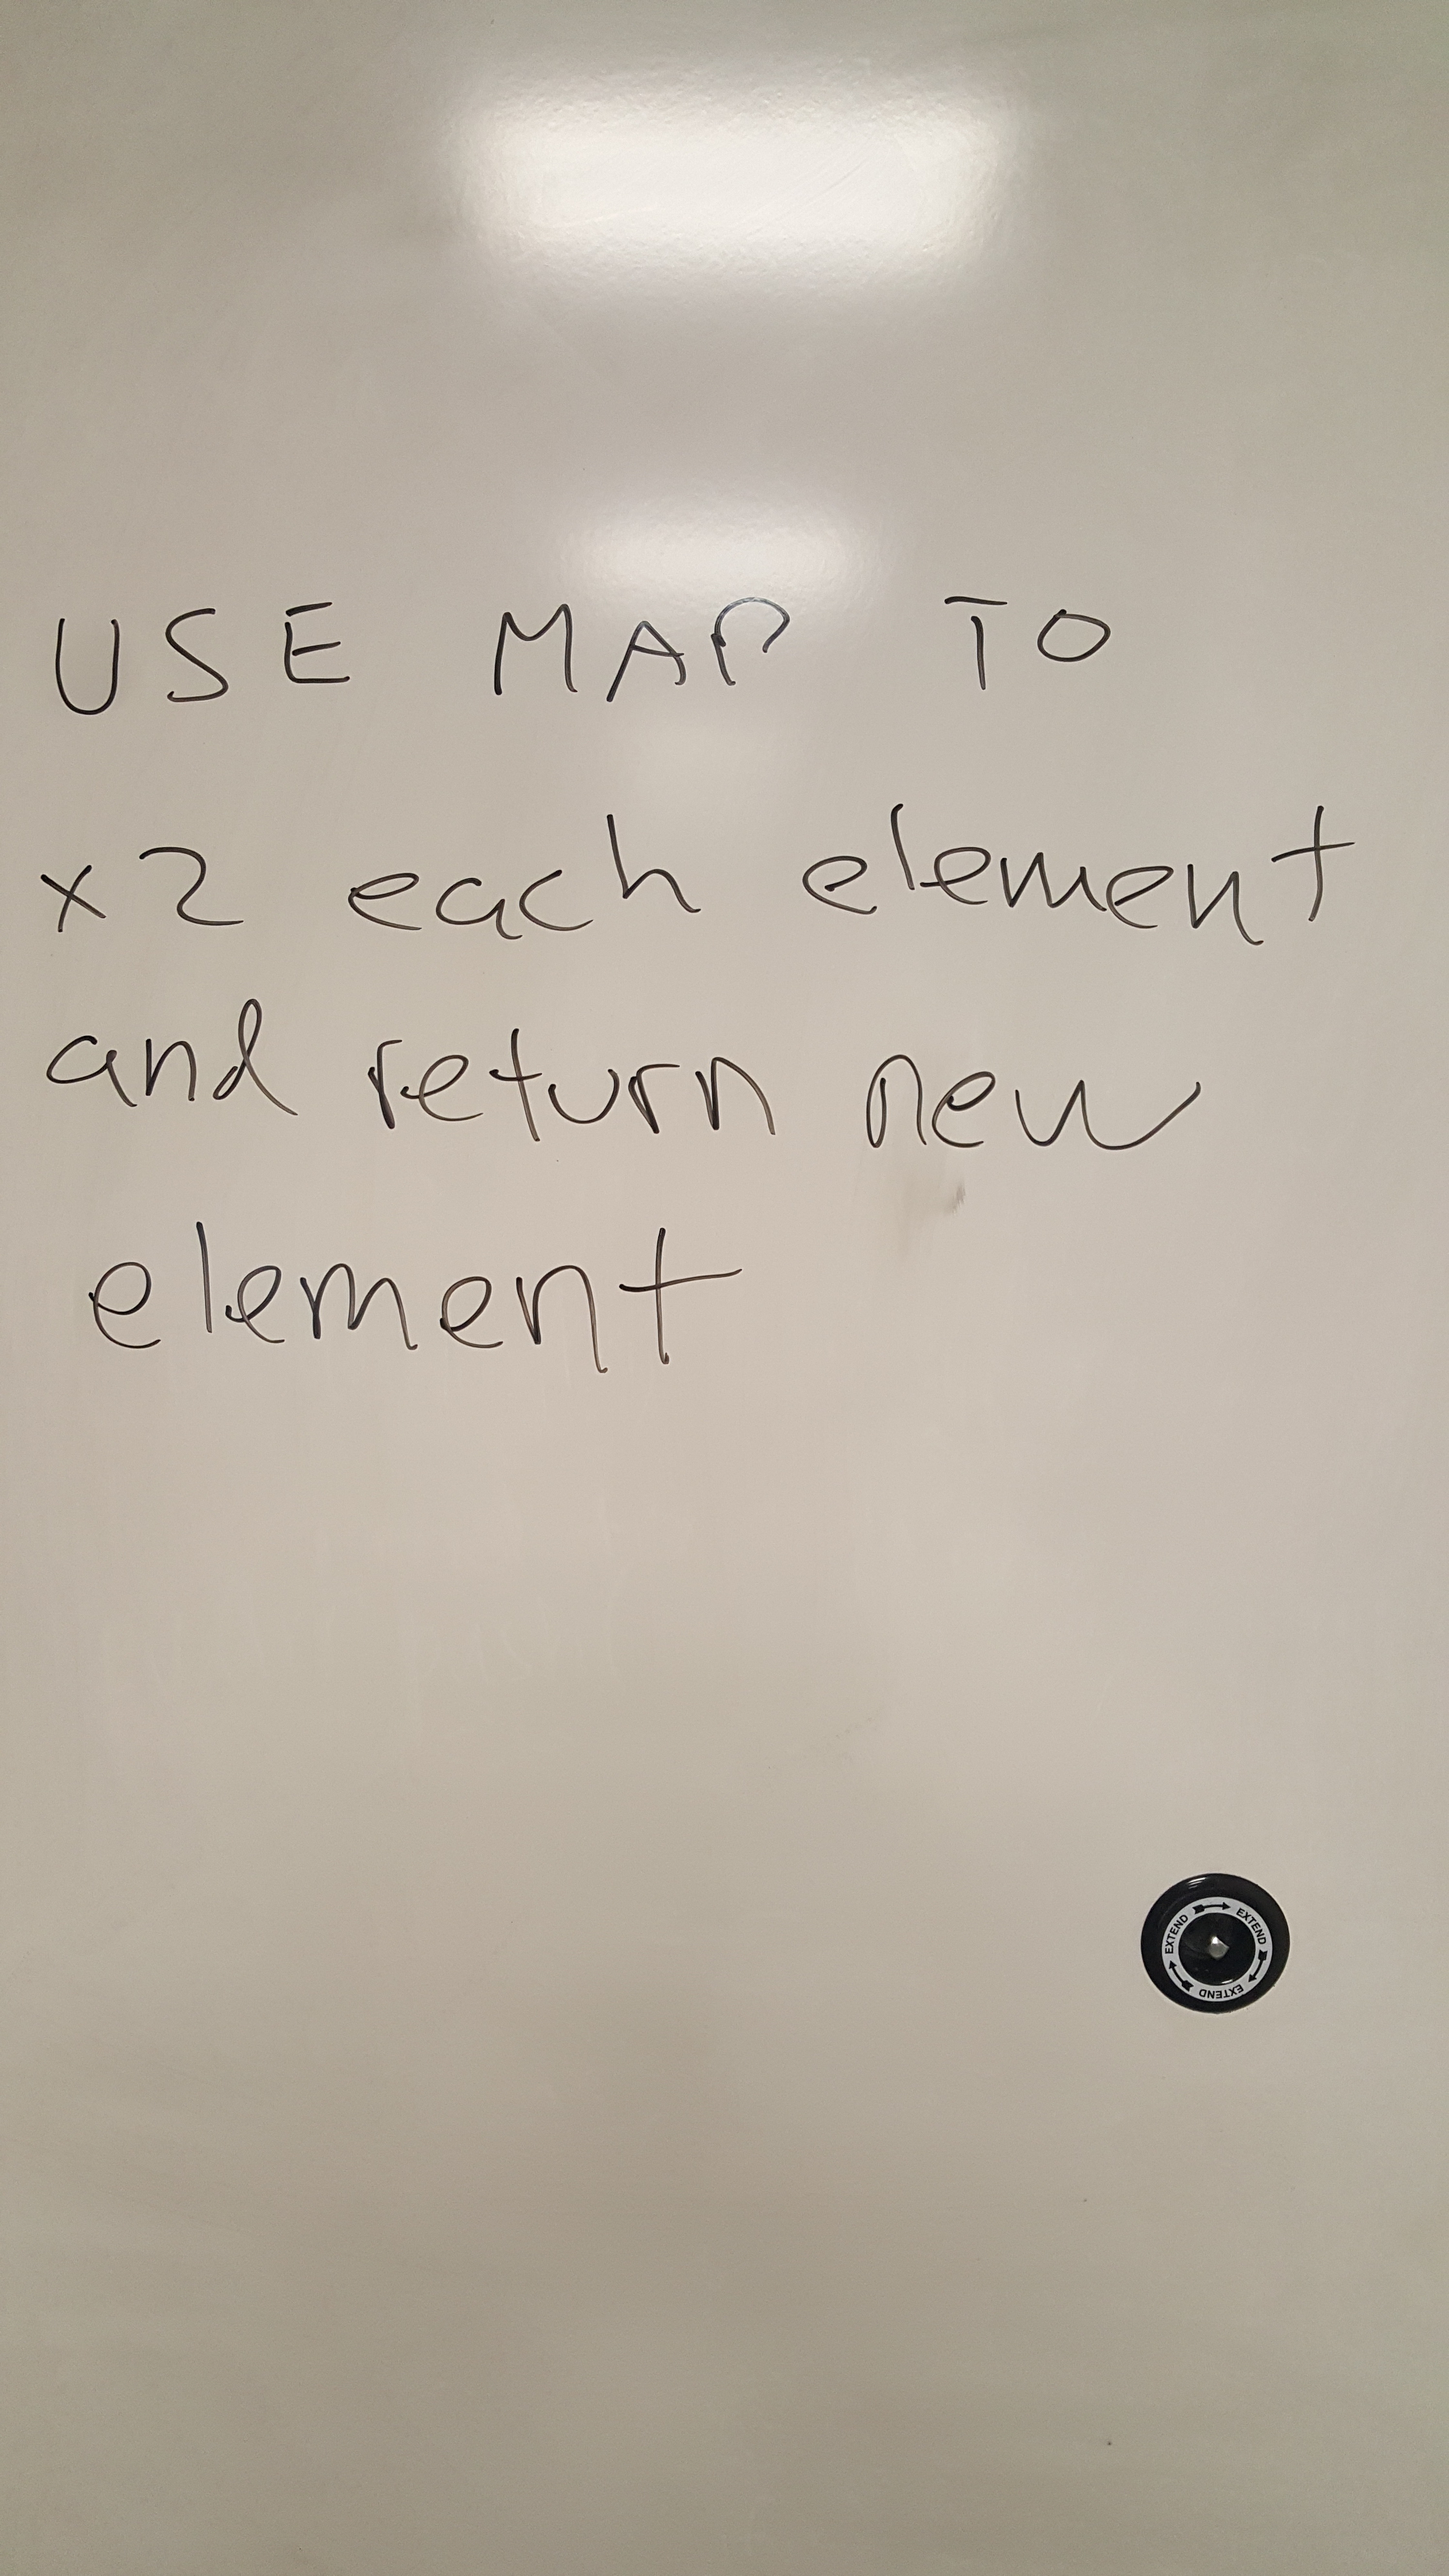 USE MAP TO
x2 each element
and return new
element
EXTEND EXTEND EXTEND